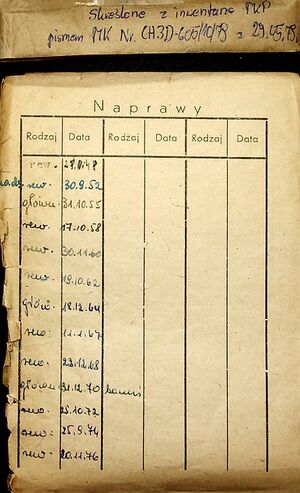 Skreślone z inwentarza PKP
pismem MK Nr. CH3D-605/10/78 z 29.05.78.
Naprawy
Rodzaj Data Rodzaj Data Rodzaj Data
rew.
rew. 30.9.52
główn. 31.10.55
rew. 17.10.58
rew. 30.11.60
rew. 19.10.62
główn. 18.12.64
rew. 11.1.67
rew. 23.12.68
główn. 31.12.70
rew. 25.10.72
rew. 25.9.74
rew. 20.11.76